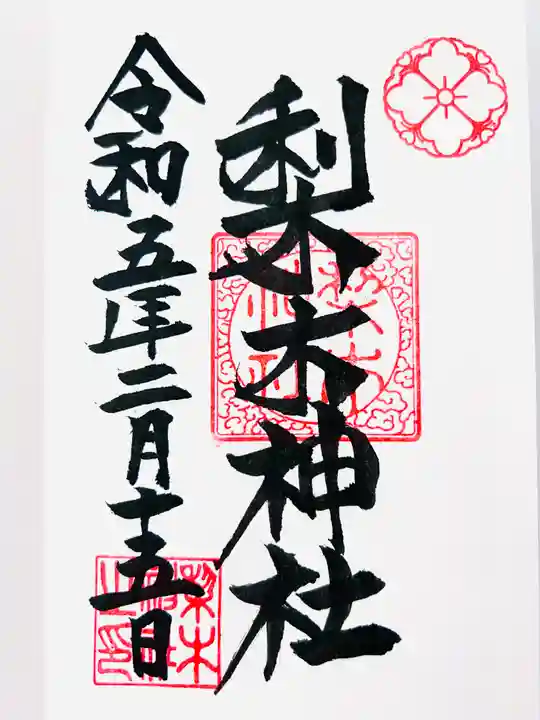 梨木神社
令和五年二月十五日